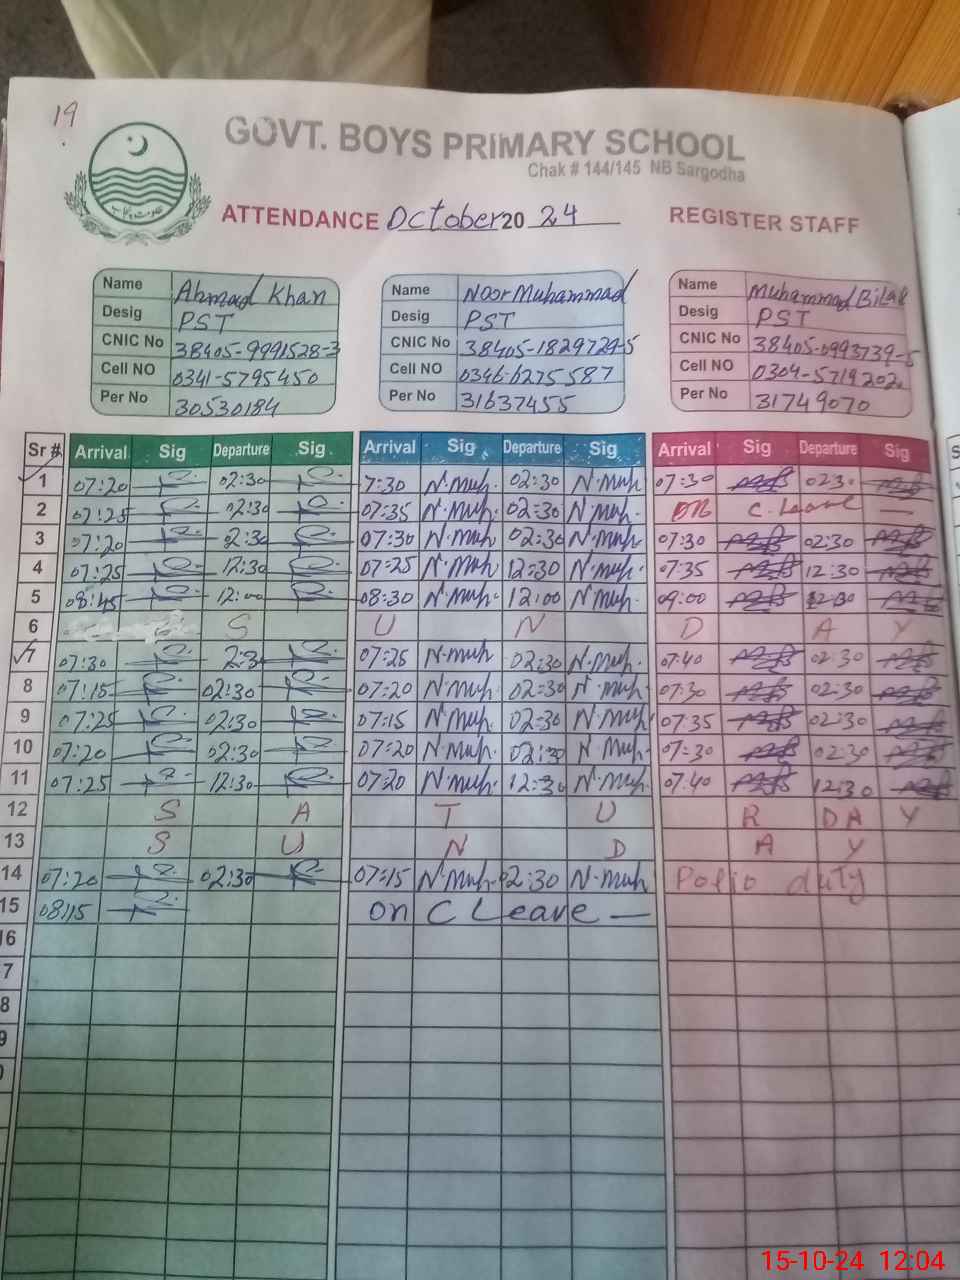 19
GOVT. BOYS PRIMARY SCHOOL
Chak # 144/145 NB Sargodha
ATTENDANCE October 2024 REGISTER STAFF
Name Ahmad Khan Name Noor Muhammad Name Muhammad Bilal
Desig PST Desig PST Desig PST
CNIC No 38405-9991528-3 CNIC No 38405-1829729-5 CNIC No 38405-0993739-5
Cell NO 0341-5795450 Cell NO 0346-6275587 Cell NO 0304-5719202
Per No 30530184 Per No 31637455 Per No 31749070
Sr # Arrival Sig Departure Sig Arrival Sig Departure Sig Arrival Sig Departure Sig
1 07:20 02:30 7:30 N.muh. 02:30 N.muh. 07:30 02:30
2 07:25 02:30 07:35 N.muh. 02:30 N.muh. On C. Leave —
3 07:20 02:30 07:30 N.muh 02:30 N.muh. 07:30 02:30
4 07:25 12:30 07:25 N.muh 12:30 N.muh. 07:35 12:30
5 08:45 12:00 08:30 N.muh. 12:00 N.muh. 09:00 12:30
6 S U N D A Y
7 07:30 2:30 07:25 N.muh 02:30 N.muh. 07:40 02:30
8 07:15 02:30 07:20 N.muh. 02:30 N.muh. 07:30 02:30
9 07:25 02:30 07:15 N.muh. 02:30 N.muh. 07:35 02:30
10 07:20 02:30 07:20 N.muh. 02:30 N.muh. 07:30 02:30
11 07:25 12:30 07:20 N.muh. 12:30 N.muh. 07:40 12:30
12 S A T U R D A Y
13 S U N D A Y
14 07:20 02:30 07:15 N.muh. 02:30 N.muh Polio duty
15 08:15 on C Leave —
16
7
8
9
0
15-10-24 12:04